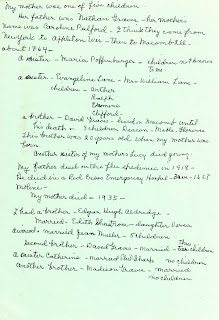 My mother was one of five children
Her father was Nathan Graves - her mother's
name was Caroline Pulford - I think they came from
New York to Appleton Wis - Then to Macomb Ill -
about 1864 -
A sister - Maria Poffinbarger - children not known
to me
a sister - Evangeline Lane - Mrs William Lane -
children - Arthur
Ralph
Clifford -
a brother - David Graves - lived in Macomb until
his death - 3 children Deacon - Mable Florence
This brother was 20 years old when my mother was
born
Another sister of my mothers Lucy died young
My father died in the flu epidemic in 1918 -
He died in a Red Cross Emergency Hospital - Dav - 1625
Moline -
My mother died - 1935 -
I had a brother - Edgar Hugh Aldredge -
Married - Edith Shastrom - daughter Doris
divorced - married Jean Mueler - 5 children
Second brother - David Graves - married - Three children
a sister Catherine - married Phil Sharh no children
Another brother - Madison Graves - married
no children